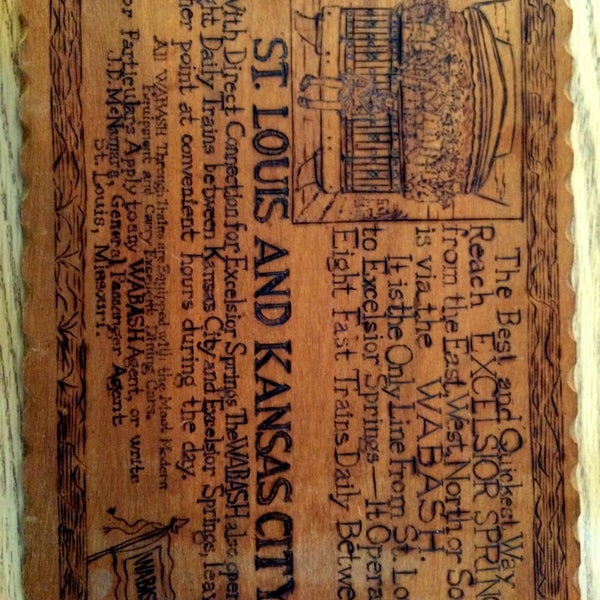 The Best and Quickest Way
Reach EXCELSIOR SPRIN
from the East, West, North or So
is via the WABASH.
It is the Only Line from St. Lo
to Excelsior Springs — It Opera
Eight Fast Trains Daily Betwe
ST. LOUIS AND KANSAS CITY
With Direct Connection for Excelsior Springs. The WABASH also oper
ght Daily Trains between Kansas City and Excelsior Springs, leav
her point at convenient hours during the day.
All WABASH Through Trains are Equipped with the Most Modern
Equipment and Carry Excellent Dining Cars.
or Particulars Apply to any WABASH Agent, or write
J.D. McNamara, General Passenger Agent
St. Louis, Missouri.
WABAS